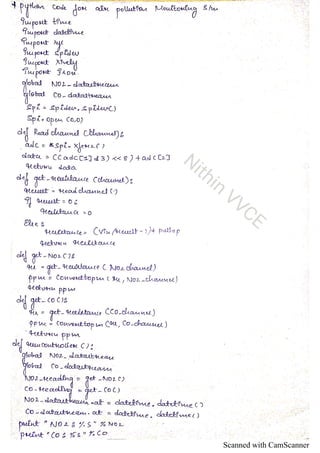 # python code for air pollution Monitoring s/m
import time
import datetime
import sys
import spidev
import xively
import json
global NO2_datastream
global CO_datastream
Spi = spidev.spidev()
Spi.open (0,0)
def Read channel (channel):
adc = spi.xfer2()
data = ((adc[1] & 3) << 8) + adc[2]
return data
def get_resistance (channel):
result = read channel ()
if result = 0:
resistance = 0
Else:
resistance = (Vin/result - 1) * pullup
return resistance
def get-NO2():
rs = get-resistance (NO2 channel)
ppm = Converttoppm (rs, NO2-channel)
return ppm
def get-CO():
rs = get-resistance (CO-channel)
ppm = Converttoppm (rs, CO-channel)
return ppm
def runcontroller():
global NO2-datastream
global CO_datastream
NO2-reading = get-NO2()
CO-reading = get-CO()
NO2-datastream-at = datetime.datetime()
CO-datastream.at = datetime.datetime()
print "NO2 : %s" % NO2
print "CO : %s" % CO
Nithin VVCE
Scanned with CamScanner